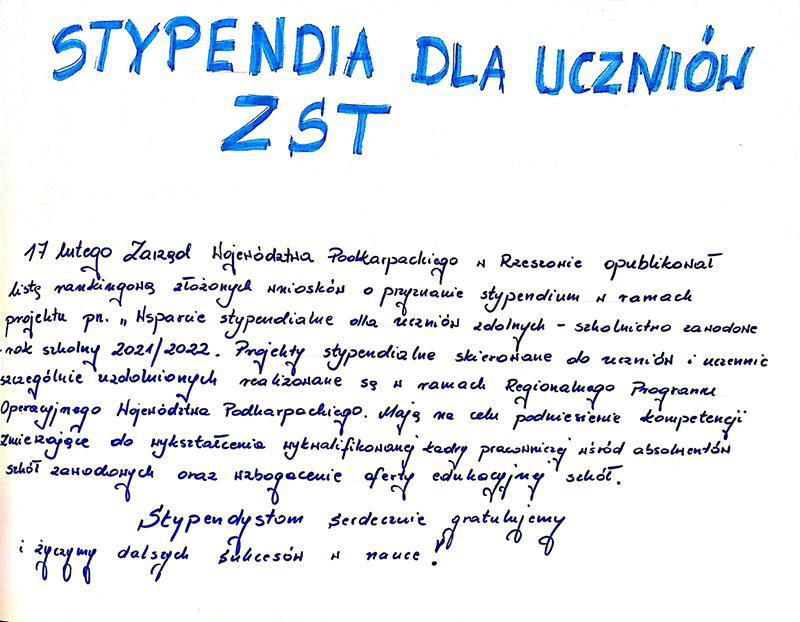 STYPENDIA DLA UCZNIÓW
ZST
17 lutego Zarząd Województwa Podkarpackiego w Rzeszowie opublikował
listę rankingową złożonych wniosków o przyznanie stypendium w ramach
projektu pn. „Wsparcie stypendialne dla uczniów zdolnych - szkolnictwo zawodowe
rok szkolny 2021/2022. Projekty stypendialne skierowane do uczniów i uczennic
szczególnie uzdolnionych realizowane są w ramach Regionalnego Programu
Operacyjnego Województwa Podkarpackiego. Mają na celu podniesienie kompetencji
zmierzające do wykształcenia wykwalifikowanej kadry pracowniczej wśród absolwentów
szkół zawodowych oraz wzbogacenie oferty edukacyjnej szkół.
Stypendystom serdecznie gratulujemy
i życzymy dalszych sukcesów w nauce!